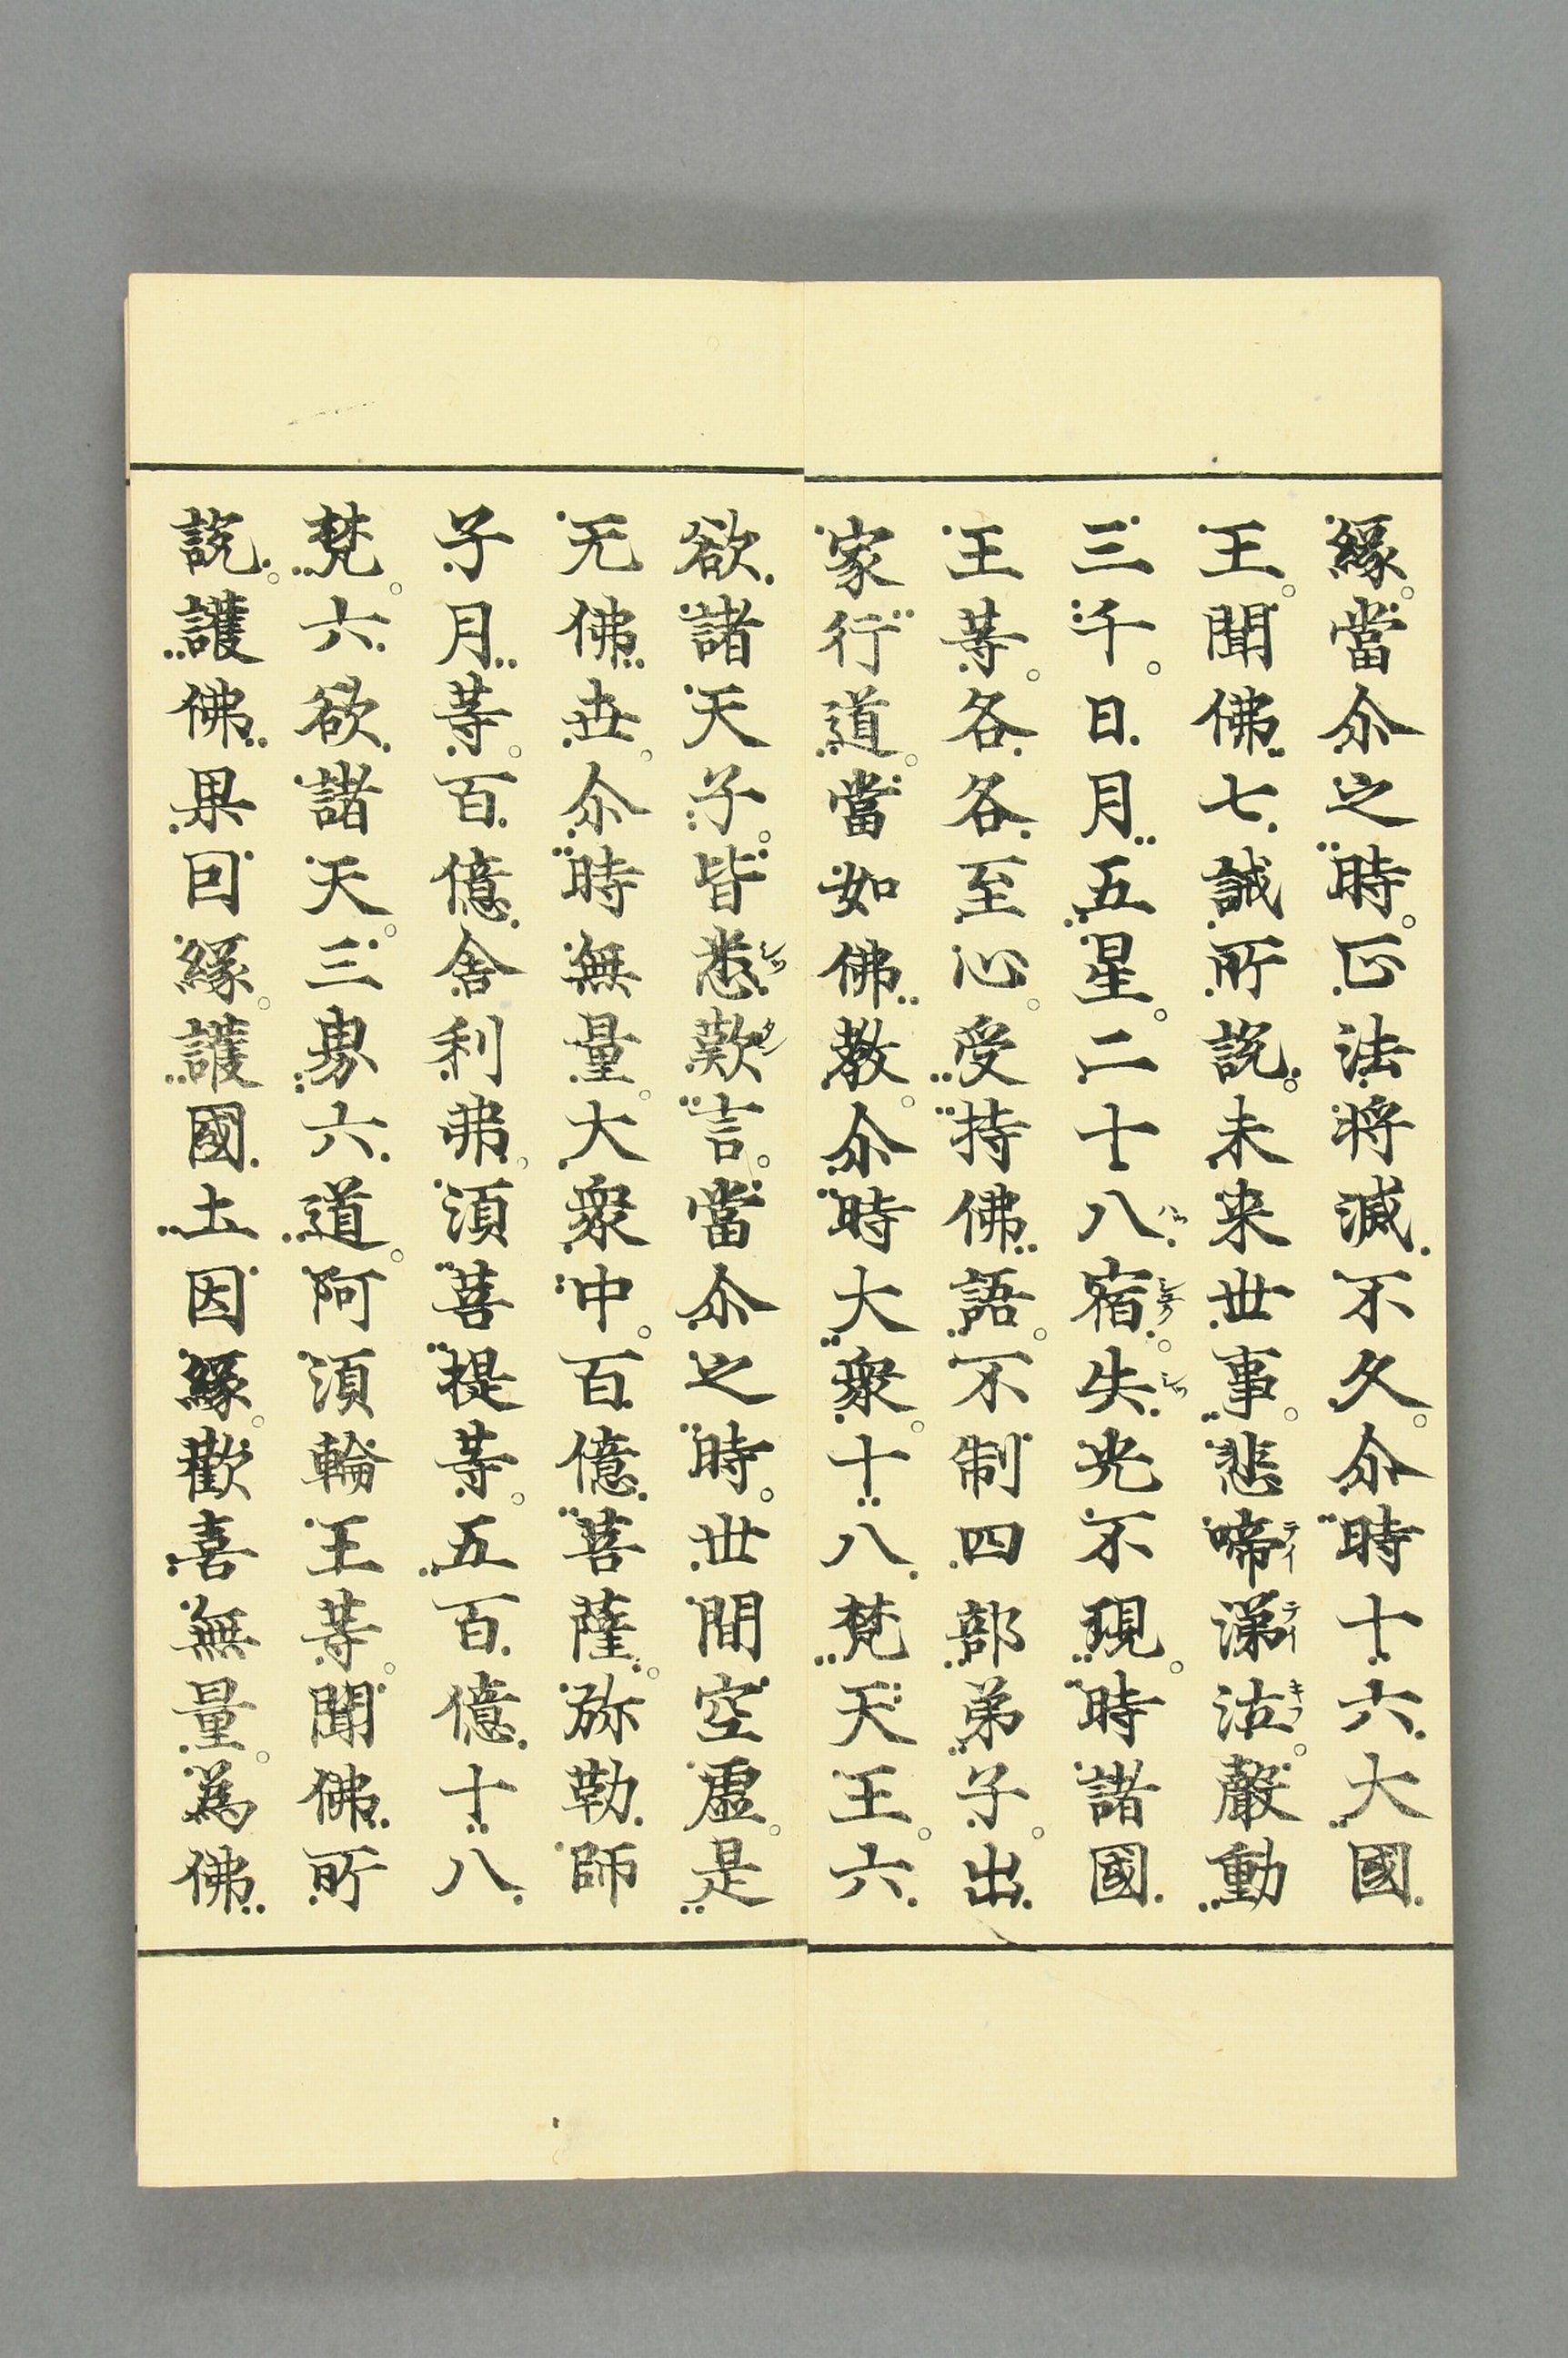 緣。當尒之時。正法將滅不久。尒時十六大國
王。聞佛七誡所說。未来世事。悲啼涕泣。聲動
三千。日月五星。二十八宿。失光不現。時諸國
王等。各各至心。受持佛語。不制四部弟子。出
家行道。當如佛教。尒時大衆。十八梵天王。六
欲諸天子。皆悉歎言。當尒之時。世間空虛。是
无佛世。尒時無量。大衆中。百億菩薩。弥勒師
子月等。百億舍利弗。須菩提等。五百億十八
梵。六欲諸天。三界六道。阿須輪王等。聞佛所
說。護佛果因緣。護國土因緣。歡喜無量。為佛